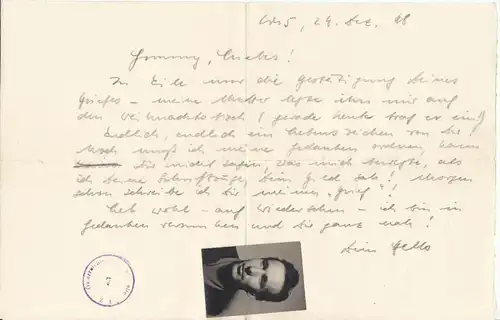 24. Dez. 48
In Eile nur die Bestätigung Deines
Briefes – meine Mutter legte ihn mir auf
den Weihnachtstisch (gerade heute traf er ein)!
Endlich, endlich ein Lebenszeichen von Dir
Noch muß ich meine Gedanken ordnen, kann
Dir nicht sagen, was mich bewegte, als
ich Deine Schriftzüge sah! Morgen
schon schreibe ich Dir meinen "Brief"!
Leb wohl – auf Wiedersehen – ich bin in
Gedanken und Dir ganz nah!
Dein
7